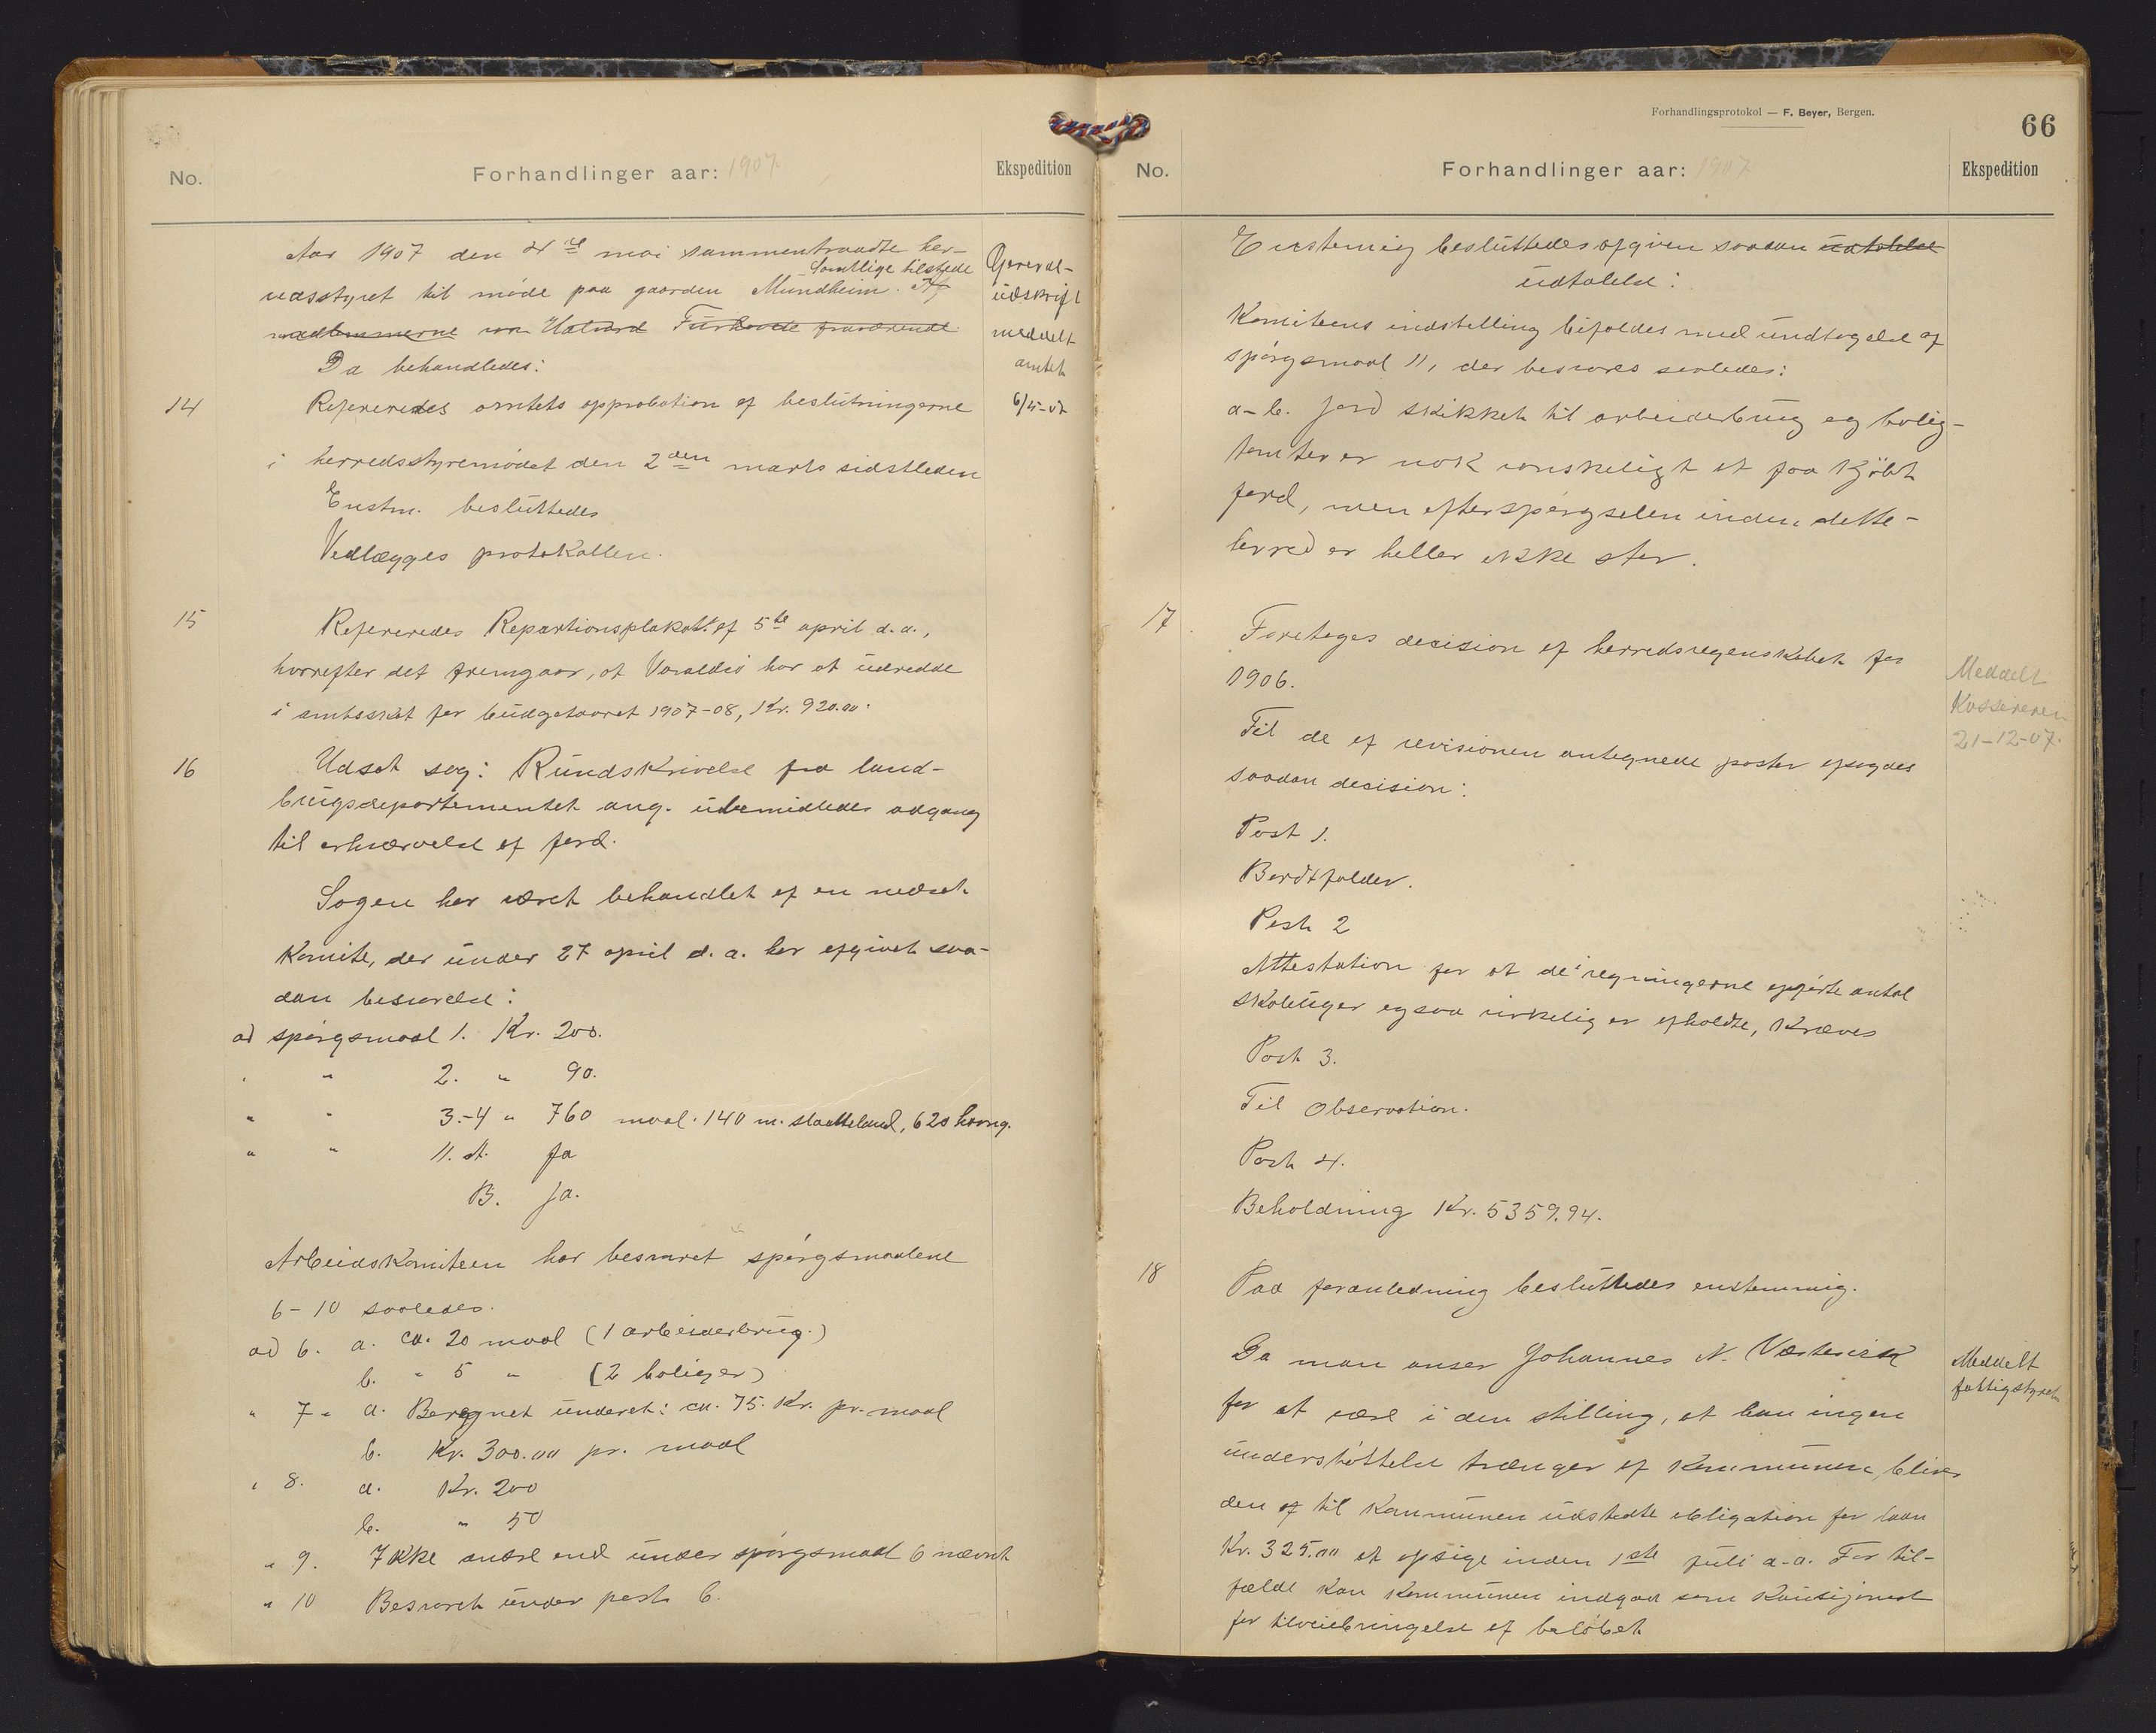 No.
Forhandlinger aar: 1907
Ekspedition
Aar 1907 den 4de mai sammentraadte her-
Samtlige tilstede
redsstyret til møde paa gaarden Mundheim. Af
medlemmerne var Halvard fraværende
Da behandledes:
General-
udskrift
meddelt
amtet
6/5-07
14
Refereredes amtets approbation af beslutningerne
i herredsstyremødet den 2den marts sidstleden
Enstm. besluttedes
Vedlægges protokollen.
15
Refereredes Repartionsplakat af 5te april d.a.,
hvorefter det fremgaar, at Varaldsø har at udredde
i amtsskat for budgetaaret 1907-08, Kr. 920.00.
16
Udsat sag: Rundskrivelse fra land-
brugsdepartementet ang. ubemidledes adgang
til erhvervelse af jord.
Sagen har været behandlet af en nedsat
Komite, der under 27 april d.a. har afgivet saa-
dan besvarelse:
ad spørgsmaal 1. Kr. 200.
" " 2. " 90.
" " 3.-4 " 760 maal. 140 m. slaatteland, 620 havng.
" " 11. A. Ja
B. Ja.
Arbeidskomiteen har besvaret spørgsmaalene
6-10 saaledes.
ad 6. a. ca. 20 maal (1 arbeiderbrug.)
b. " 5 " (2 boliger)
" 7 " a. Beregnet underet: ca. 75. Kr. pr. maal
b. Kr. 300.00 pr. maal
" 8. a. Kr. 200
b. " 50
" 9. Ikke andre end under spørgsmaal 6 nævnt
" 10 Besvaret under post 6.
Forhandlingsprotokol — F. Beyer, Bergen.
66
No.
Forhandlinger aar: 1907
Ekspedition
Enstemig besluttedes afgiven saadan udtalelse
udtalelse:
Komiteens indstilling bifaldes med undtagelse af
spørgsmaal 11, der besvares saaledes:
a-b. Jord skikket til arbeiderbrug og bolig-
tomter er nok vanskeligt at faa kjøbt
jord, men efterspørgselen inden dette
herred er heller ikke stor.
17.
Foretages decision af herredsregnskabet for
1906.
Meddelt
Kassereren
21-12-07.
Til de af revisionen antegnede poster afsagdes
saadan decision:
Post 1.
Bortfalder.
Post 2
Attestation for at de i regningerne opførte antal
skoleuger ogsaa virkelig er afholdte, kræves
Post 3.
Til Observation.
Post 4.
Beholdning Kr. 5359.94.
18
Paa foranledning besluttedes enstemmig.
Da man anser Johannes N. Vestervik
for at være i den stilling, at han ingen
understøttelse trænger af kommunen, bliver
den af til kommunen udstedte obligation for laan
Kr. 325.00 at opsige inden 1ste juli d.a. For til-
fælde kan kommunen indgaa som kausjonist
for tilveiebringelse af beløbet
Meddelt
fattigstyret